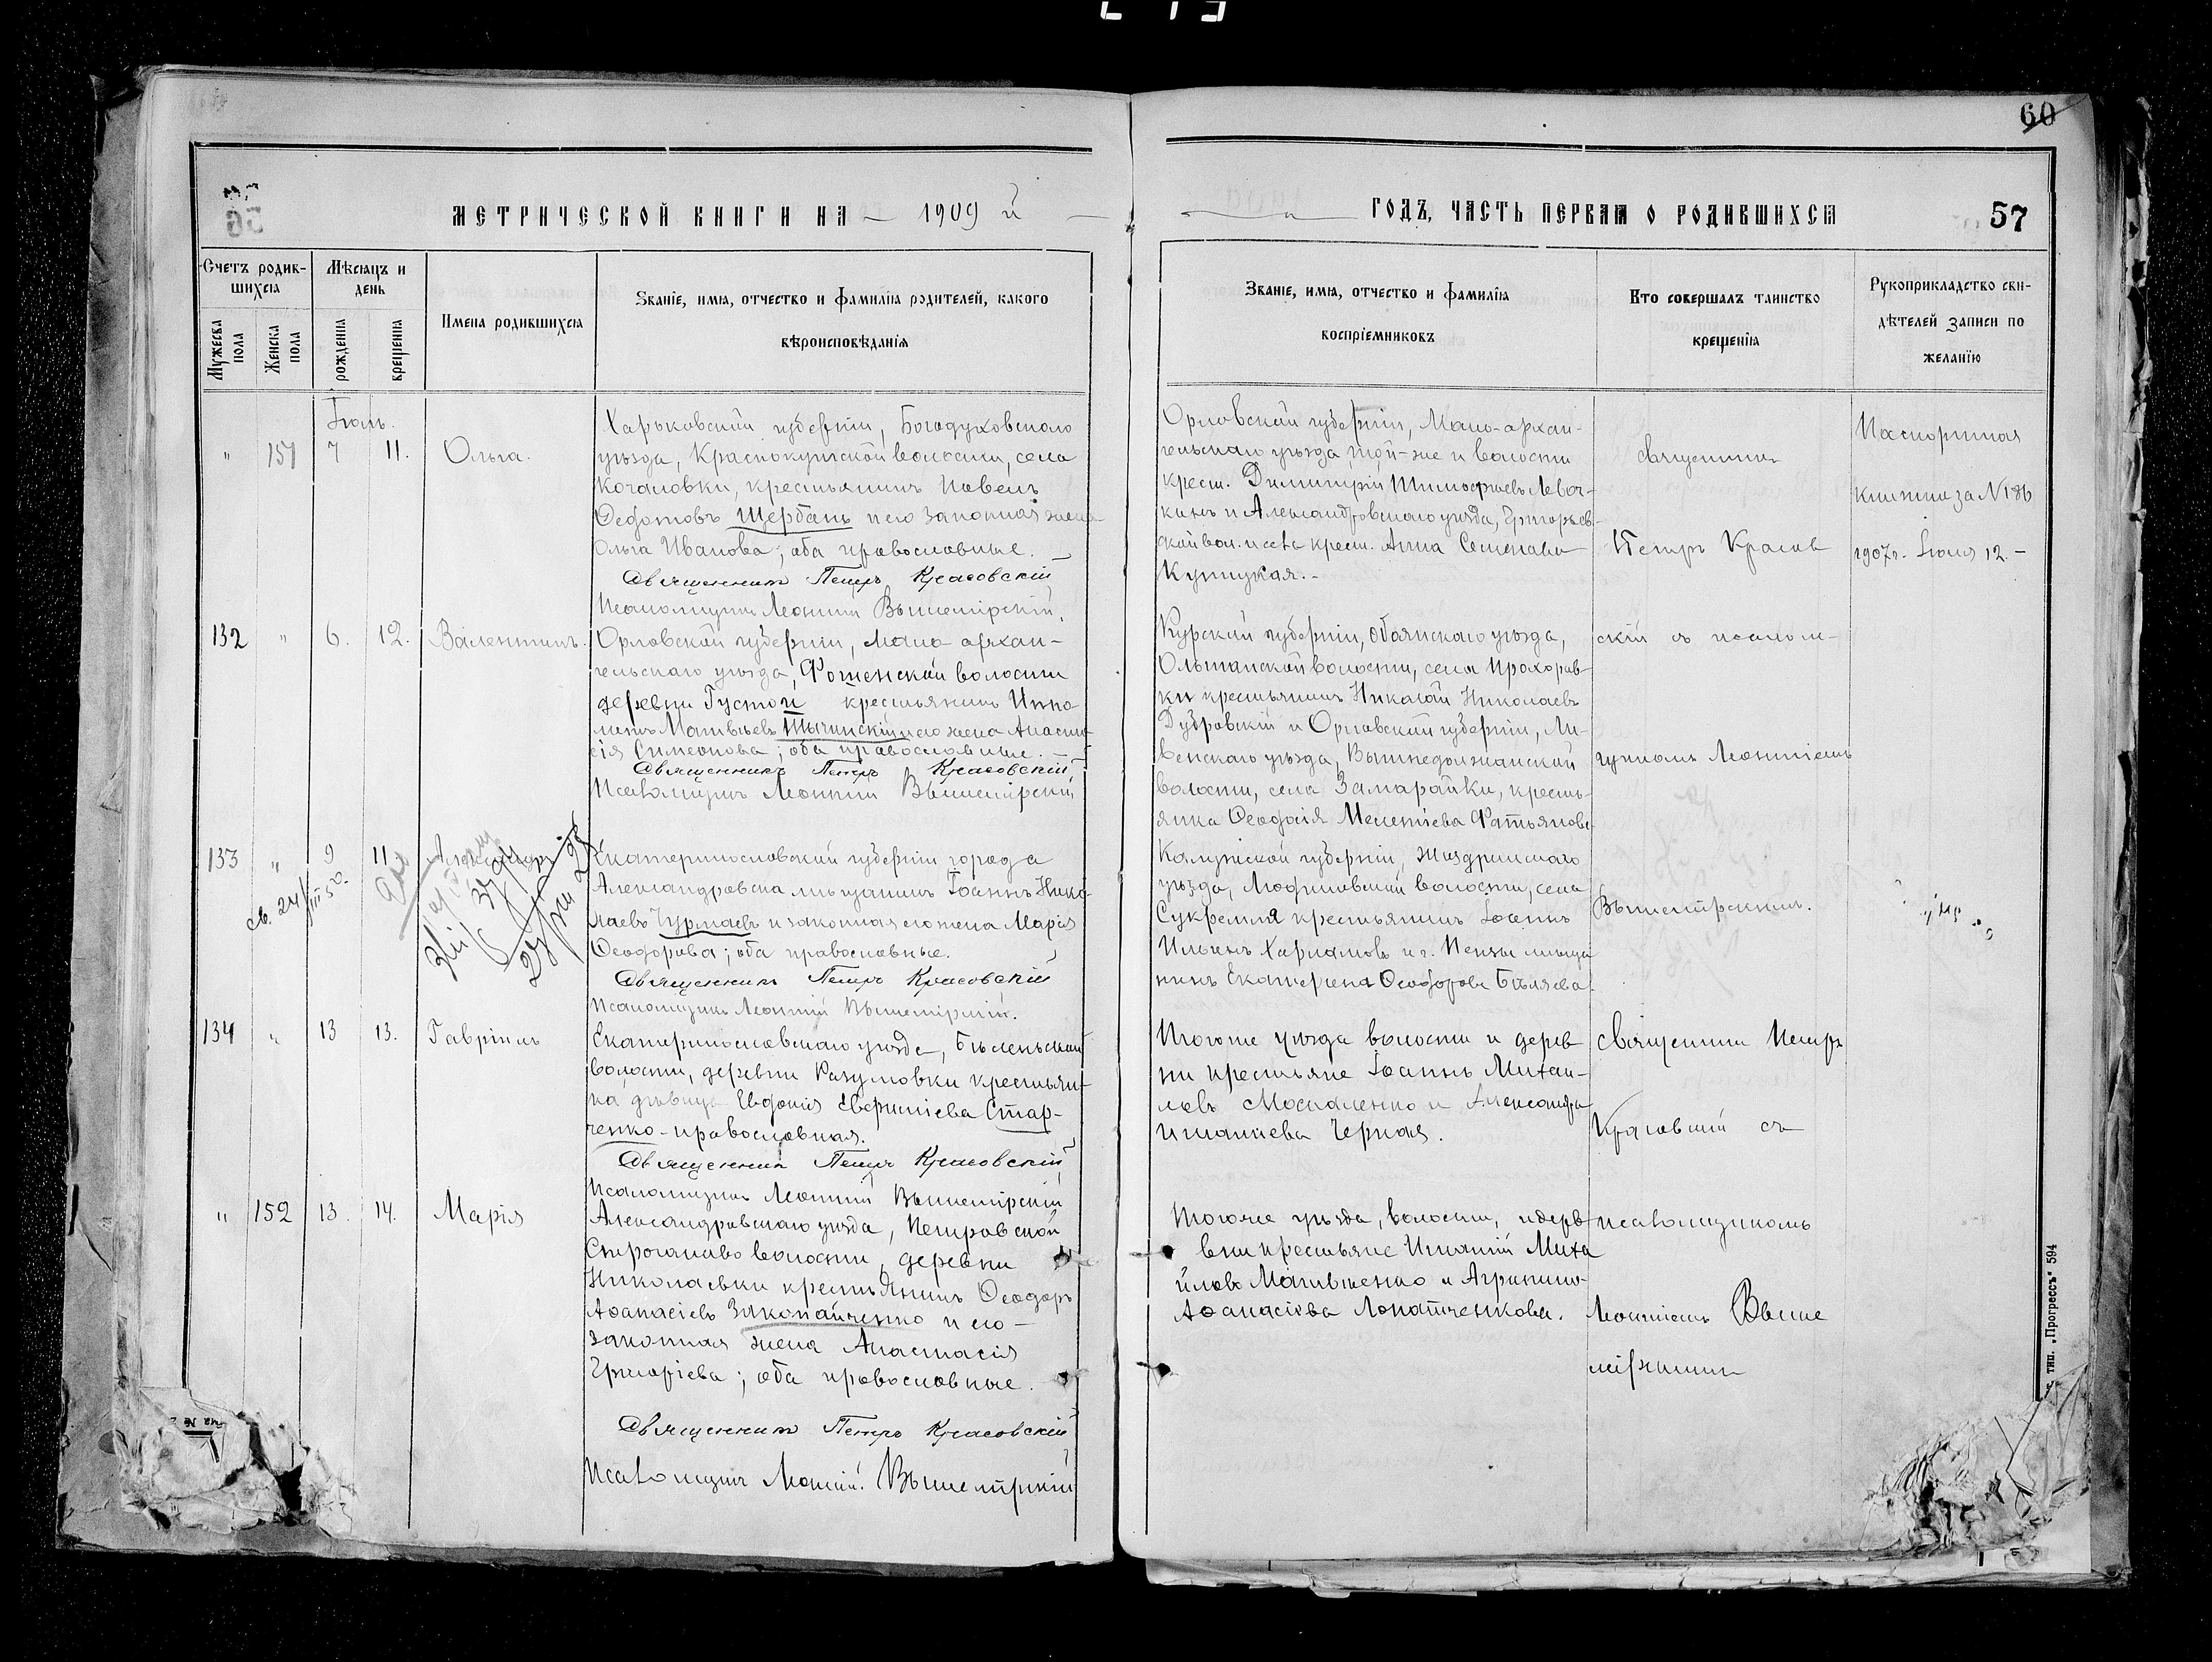 60
МЕТРИЧЕСКОЙ КНИГИ НА — 1909 й
ГОДЪ, ЧАСТЬ ПЕРВАЯ О РОДИВШИХСЯ
57
Счетъ родив-
шихся
Мѣсяцъ и
день
Мужеска
пола
Женска
пола
рожденія
крещенія
Имена родившихся
Званіе, имя, отчество и фамилія родителей, какого
вѣроисповѣданія
Званіе, имя, отчество и фамилія
воспріемниковъ
Кто совершалъ таинство
крещенія
Рукоприкладство сви-
дѣтелей записи по
желанію
Іюль.
" 151 7 11. Ольга.
Харьковской губерніи, Богодуховскаго
уѣзда, Краснокутской волости, села
Качаловки, крестьянинъ Павелъ
Ѳеодотовъ Щербань и его законная жена
Ольга Иванова; оба православные. —
Священникъ Петръ Красовскій
Псаломщикъ Леонтій Вышемірскій
Орловской губерніи, Мало-архан-
гельскаго уѣзда, той-же и волости
крест. Димитрій Тимофѣевъ Левоч-
кинъ и Александровскаго уѣзда, Григорьев-
ской вол. и села крест. Анна Семенова
Купицкая. -
священникъ
Петръ Красов
Паспортная
книжка за N 186
1907 г. Іюля 12. -
132 " 6. 12. Валентинъ.
Орловской губерніи, Мало архан-
гельскаго уѣзда, Фошенской волости
деревни Густой крестьянинъ Иппо-
литъ Матвѣевъ Тычинскій и его жена Анаста-
сія Симеонова; оба православные. —
Священникъ Петръ Красовскій
Псаломщикъ Леонтій Вышемірскій
Курской губерніи, Обоянскаго уѣзда,
Ольшанской волости, села Прохоров-
ки крестьянинъ Николай Николаевъ
Дубровскій и Орловской губерніи, Ли-
венскаго уѣзда, Вышнедолжанской
волости, села Замарайки, кресть-
янка Ѳеодосія Мелетіева Фатьянова
скій съ псалом-
щикомъ Леонтіемъ
133 " 9 11 Александръ
св. 24/III 50.
Екатеринославской губерніи города
Александровска мѣщанинъ Іоаннъ Нико-
лаевъ Чурмаевъ и законная его жена Марія
Ѳеодорова; оба православные.
Священникъ Петръ Красовскій
Псаломщикъ Леонтій Вышемірскій.
Калужской губерніи, Жиздринскаго
уѣзда, волости, села
Сукремля крестьянинъ Іоаннъ
Ильинъ Харламовъ и г. Пензы мѣща
нинъ Екатерина Ѳеодорова Бѣляева
Вышемірскимъ.
134 " 13 13. Гавріилъ
Екатеринославскаго уѣзда, Бѣленьской
волости, деревни Разумовки крестьян-
ка дѣвица Евдокія Еверитіева Стар-
ченко - православная.
Священникъ Петръ Красовскій
Псаломщикъ Леонтій Вышемірскій
Тогоже уѣзда волости и дерев
ни крестьяне Іоаннъ Михаи-
ловъ Москаленко и Александра
Игнатіева Черная.
Священникъ Петръ
Красовскій съ
" 152 13. 14. Марія
Александровскаго уѣзда, Петровской
Строганово волости, деревни
Николаевки крестьянинъ Ѳеодоръ
Аѳанасіевъ Закопайченко и его —
законная жена Анастасія
Григоріева; оба православные.
Священникъ Петръ Красовскій
Псаломщикъ Леонтій Вышемірскій
Тогоже уѣзда, волости, и дерев
вни крестьяне Игнатій Миха
йловъ Матвѣенко и Агрипина
Аѳанасіева Лопатченкова.
псаломщикомъ
Леонтіемъ Выше
мірскимъ
тип. „Прогрессъ" 594